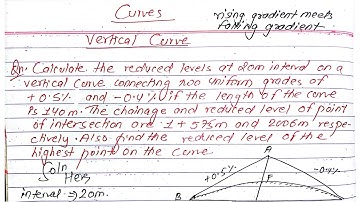 Curves
rising gradient meets
falling gradient
Vertical Curve
Qn: Calculate the reduced levels at 20m interval on a
vertical curve connecting two uniform grades of
+0.5% and -0.4% if the length of the curve
is 140m. The chainage and reduced level of point
of intersection are 1+595m and 2006m res-
pectively. Also find the reduced level of the
highest point on the curve.
Soln
Here
A
interval ⇒ 20m.
+0.5%
F
-0.4%
B